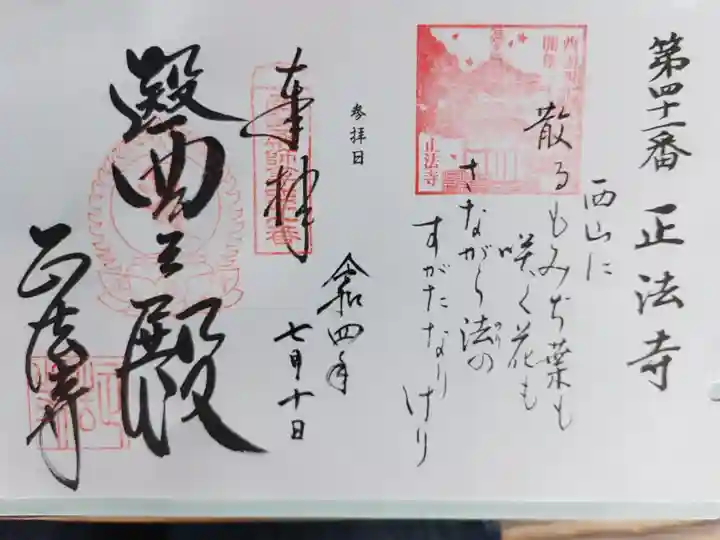 第四十一番 正法寺
西山に
散るもみぢ葉も
咲く花も
さながら法の
のり
すがたなりけり
正法寺
参拝日
令和四年
七月十日
奉拝
醫王殿
正法寺